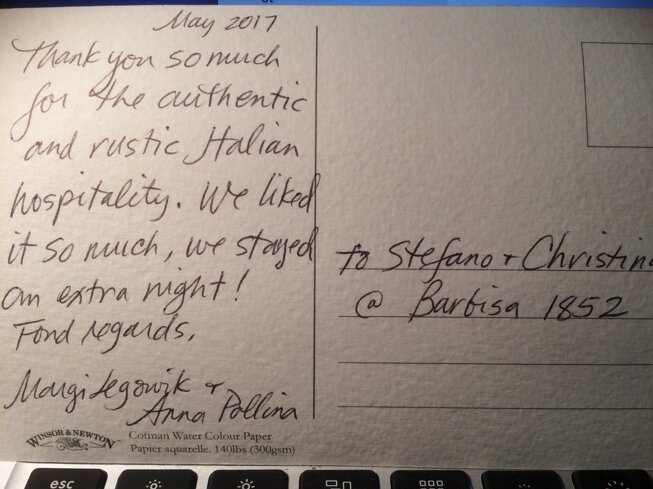 May 2017
Thank you so much
for the authentic
and rustic Italian
hospitality. We liked
it so much, we stayed
an extra night!
Fond regards,
Margi Legowik +
Anna Pollina
to Stefano + Christin
@ Barbisa 1852
WINSOR & NEWTON
Cotman Water Colour Paper
Papier aquarelle. 140lbs (300gsm)
esc